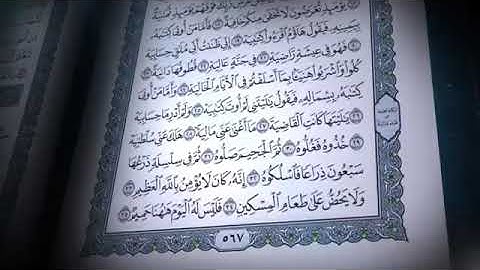 يَوْمَئِذٍ تُعْرَضُونَ لَا تَخْفَىٰ مِنكُمْ خَافِيَةٌ ١٨ فَأَمَّا مَنْ أُوتِيَ كِتَٰبَهُۥ
بِيَمِينِهِۦ فَيَقُولُ هَآؤُمُ ٱقْرَءُوا۟ كِتَٰبِيَهْ ١٩ إِنِّي ظَنَنتُ أَنِّي مُلَٰقٍ حِسَابِيَهْ
٢٠ فَهُوَ فِي عِيشَةٍ رَّاضِيَةٍ ٢١ فِي جَنَّةٍ عَالِيَةٍ ٢٢ قُطُوفُهَا دَانِيَةٌ ٢٣
كُلُوا۟ وَٱشْرَبُوا۟ هَنِيٓـَٔۢا بِمَآ أَسْلَفْتُمْ فِي ٱلْأَيَّامِ ٱلْخَالِيَةِ ٢٤ وَأَمَّا مَنْ أُوتِيَ
كِتَٰبَهُۥ بِشِمَالِهِۦ فَيَقُولُ يَٰلَيْتَنِي لَمْ أُوتَ كِتَٰبِيَهْ ٢٥ وَلَمْ أَدْرِ مَا حِسَابِيَهْ
٢٦ يَٰلَيْتَهَا كَانَتِ ٱلْقَاضِيَةَ ٢٧ مَآ أَغْنَىٰ عَنِّي مَالِيَهْ ٢٨ هَلَكَ عَنِّي سُلْطَٰنِيَهْ
٢٩ خُذُوهُ فَغُلُّوهُ ٣٠ ثُمَّ ٱلْجَحِيمَ صَلُّوهُ ٣١ ثُمَّ فِي سِلْسِلَةٍ ذَرْعُهَا
سَبْعُونَ ذِرَاعًا فَٱسْلُكُوهُ ٣٢ إِنَّهُۥ كَانَ لَا يُؤْمِنُ بِٱللَّهِ ٱلْعَظِيمِ ٣٣
وَلَا يَحُضُّ عَلَىٰ طَعَامِ ٱلْمِسْكِينِ ٣٤ فَلَيْسَ لَهُ ٱلْيَوْمَ هَٰهُنَا حَمِيمٌ ٣٥
٥٦٧